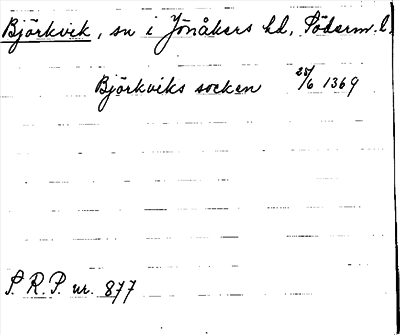 Björkvik, sn i Jönåkers hd, Söderm. l.
Björkviks socken 25/6 1369
S. R. P. nr. 877